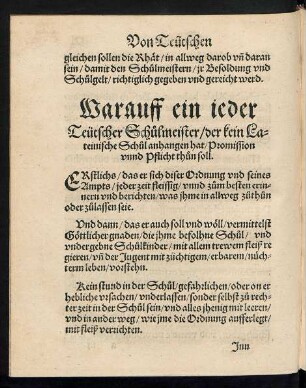 Von Teütschen
gleichen sollen die Rhät / in allweg darob vñ daran
sein / damit den Schůlmeistern / jr Besoldung vnd
Schůlgelt / richtiglich gegeben vnd gereicht werd.
Warauff ein ieder
Teütscher Schůlmeister / der kein La-
teinische Schůl anhangen hat / Promission
vnnd Pflicht thůn soll.
ERstlichs / das er sich diser Ordnung vnd seines
Ampts / jeder zeit fleissig / vnnd zům besten erin-
nern vnd berichten / was jhme in allweg zůthůn
oder zůlassen seie.
Vnd dann / das er auch soll vnd wöll / vermittelst
Göttlicher gnaden / die jhme befolhne Schůl / vnd
vndergebne Schůlkinder / mit allem trewem fleiß re-
gieren / vñ der Jugent mit züchtigem / erbarem / nüch-
term leben / vorstehn.
Kein stund in der Schůl / gefahrlichen / oder on er-
hebliche vrsachen / vnderlassen / sonder selbst zů rech-
ter zeit in der Schůl sein / vnd alles jhenig mit leeren /
vnd in ander weg / wie jme die Ordnung aufferlegt /
mit fleiß verrichten.
Inn